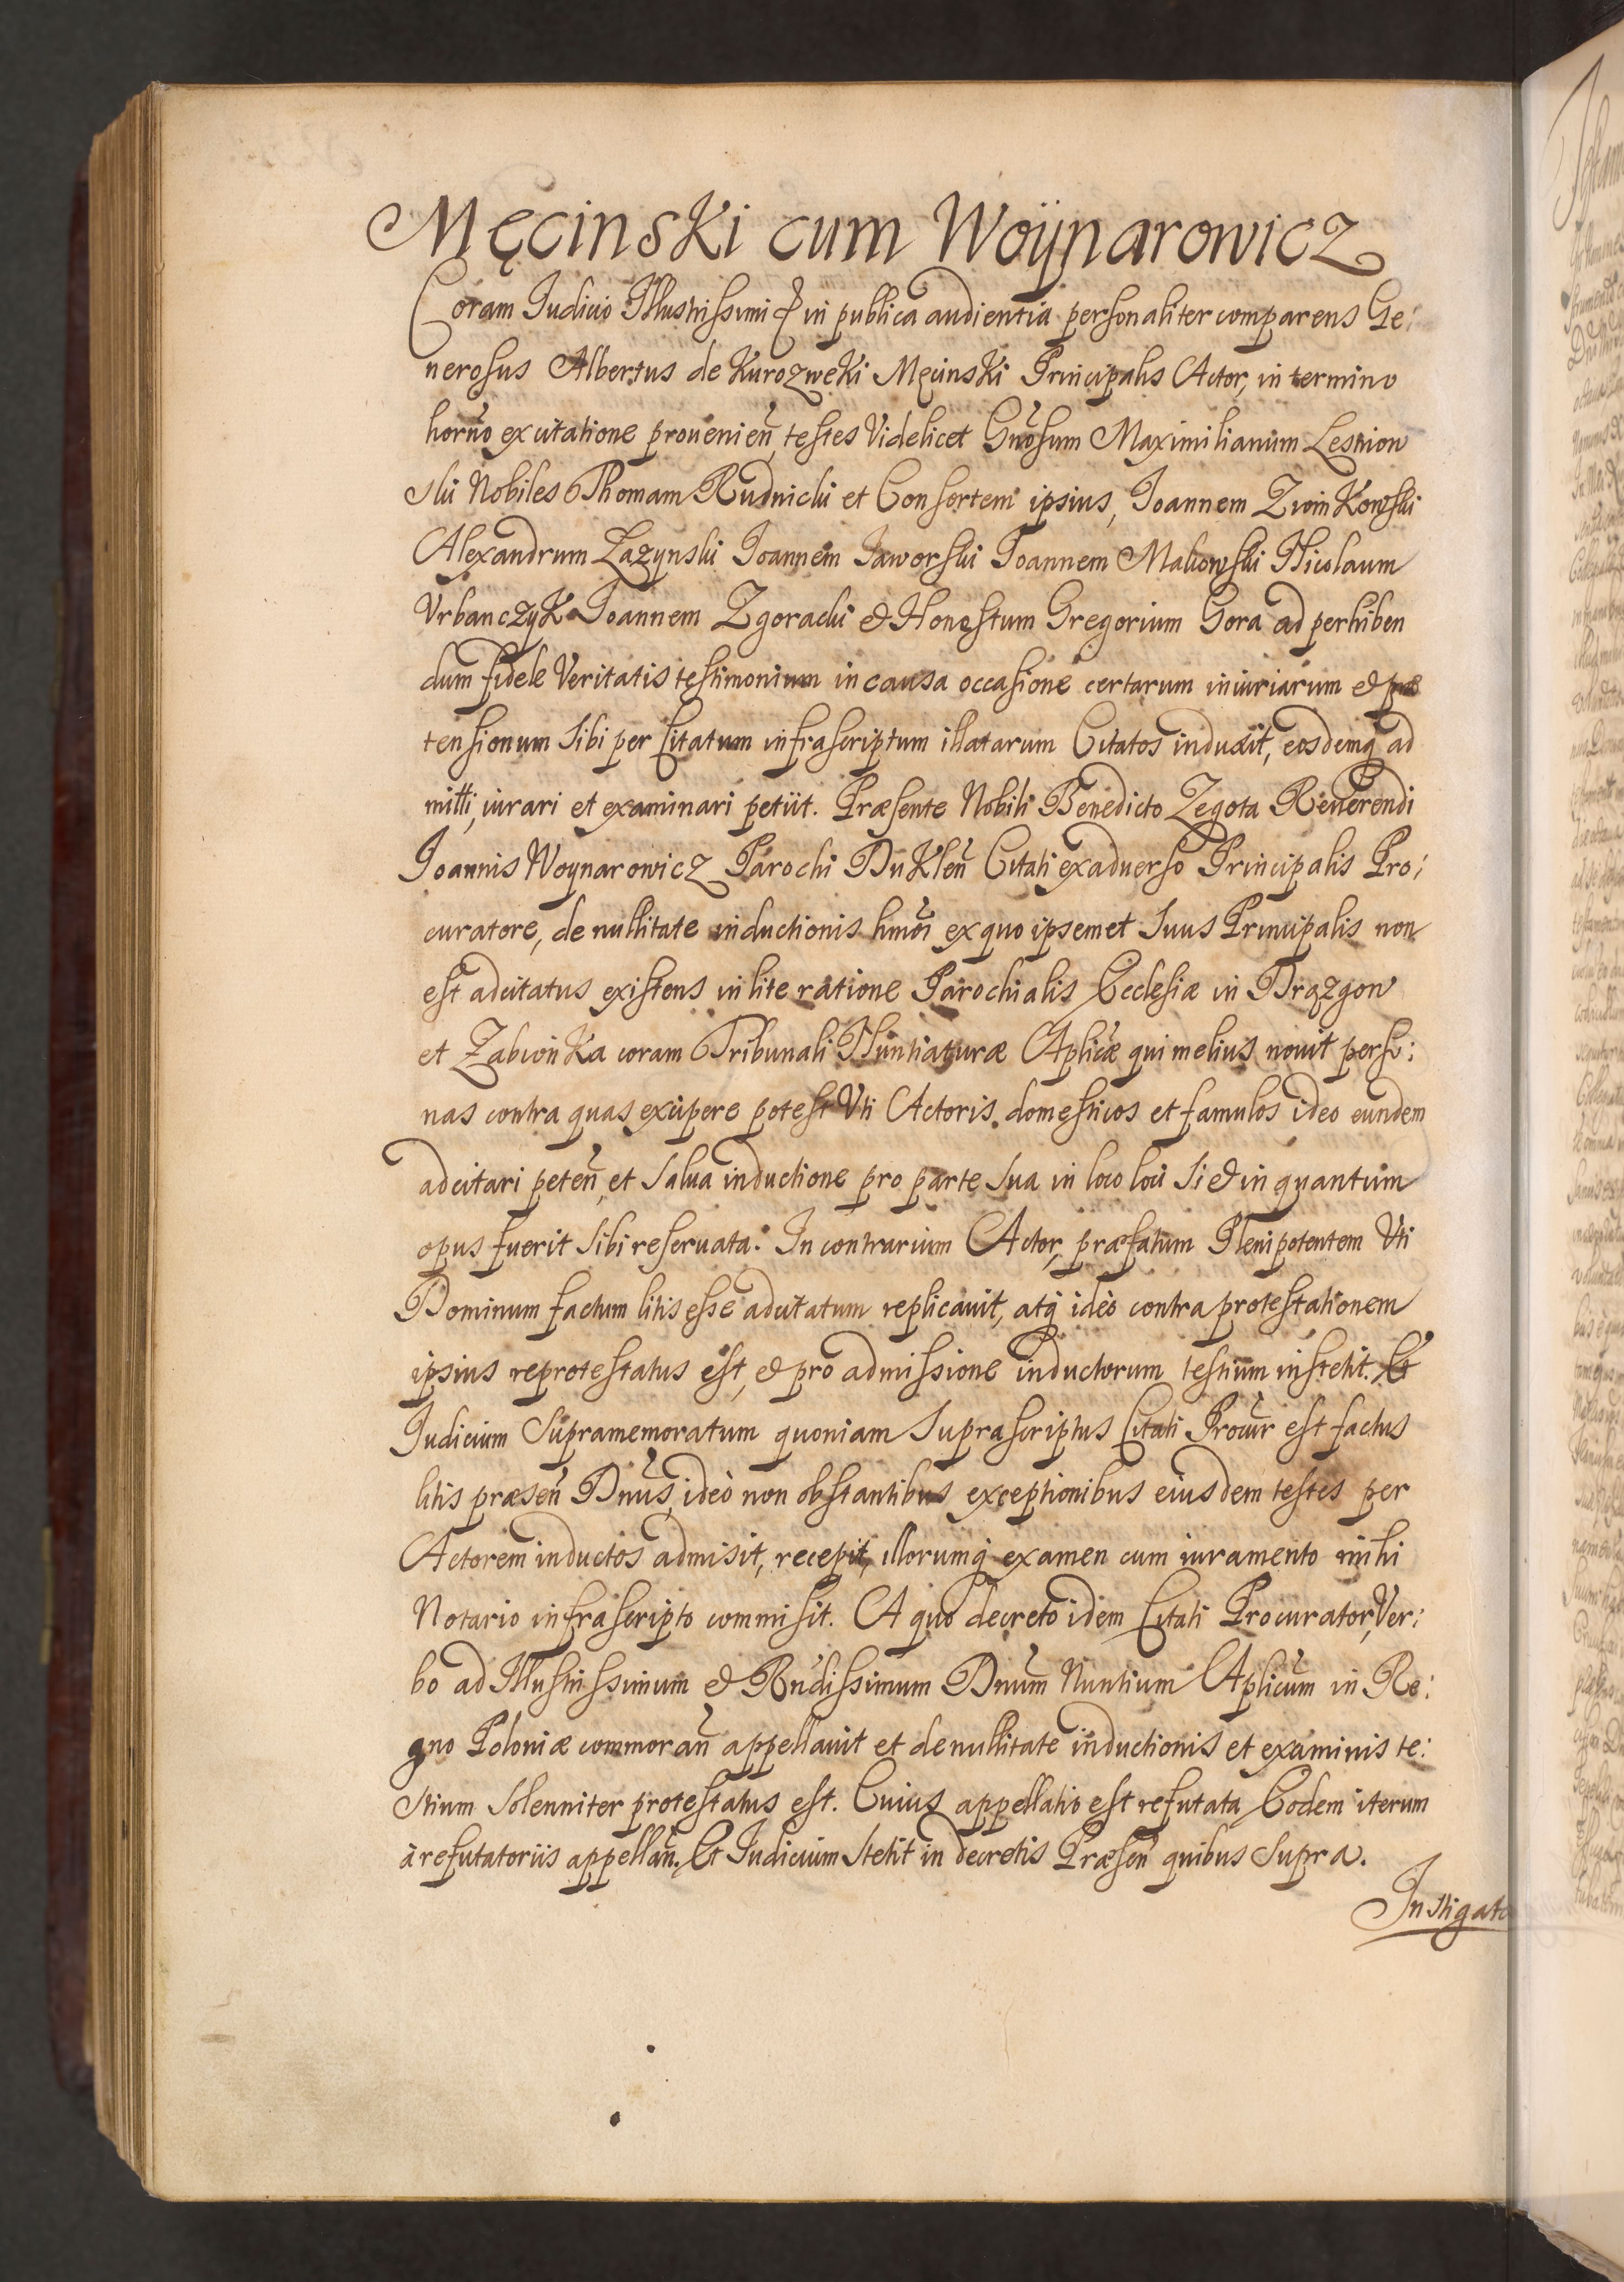 Męcinski cum Woÿnarowicz
Coram Iudicio Illustrissimi & in publica audientia personaliter comparens Ge:
nerosus Albertus de Kurozweki Męcinski Principalis Actor, in termino
horño ex citatione prouenieñ, testes Videlicet Gñosum Maximilianum Lesniow
ski Nobiles Thomam Rudnicki et Consortem ipsius, Joannem Zwinkowski
Alexandrum Łazynski Joannem Jaworski Joannem Makowski Nicolaum
Vrbanczyk Joannem Zgoracki & Honestum Gregorium Gora ad perhiben
dum fidele Veritatis testimonium in causa occasione certarum iniuriarum & præ
tensionum sibi per Citatum infrascriptum illatarum Citatos induxit, eosdemq̃ ad
mitti, iurari et examinari petiit. Præsente Nobili Benedicto Zegota Reuerendi
Joannis Woynarowicz Parochi Dukleñ Citati ex aduerso Principalis Pro:
curatore, de nullitate inductionis hmõi ex quo ipsemet suus Principalis non
est adcitatus existens in lite ratione Parochialis Ecclesiæ in Drązgow
et Zabwinka coram Tribunali Nuntiaturæ Aplicæ qui melius nouit perso:
nas contra quas excipere potest Vti Actoris domesticos et famulos ideo eundem
adcitari peteñ, et salua inductione pro parte sua in loco loci si & in quantum
opus fuerit sibi reseruata. In contrarium Actor, præfatum Plenipotentem Vti
Dominum factum litis esse adcitatum replicauit, atq̃ ideò contra protestationem
ipsius reprotestatus est, & pro admissione inductorum testium institit. Et
Iudicium supramemoratum quoniam suprascriptus Citati Procur̃ est factus
litis præseñ Dñus, ideò non obstantibus exceptionibus eiusdem testes per
Actorem inductos admisit, recepit, illorumq̃ examen cum iuramento mihi
Notario infrascripto commisit. A quo decreto idem Citati Procurator, Ver:
bo ad Illustrissimum & Rñdissimum Dñum Nuntium Aplicum in Re:
gno Poloniæ commorañ appellauit et de nullitate inductionis et examinis te:
stium solenniter protestatus est. Cuius appellatio est refutata Eodem iterum
à refutatoriis appellañ. Et Iudicium stetit in decretis Præseñ quibus supra.